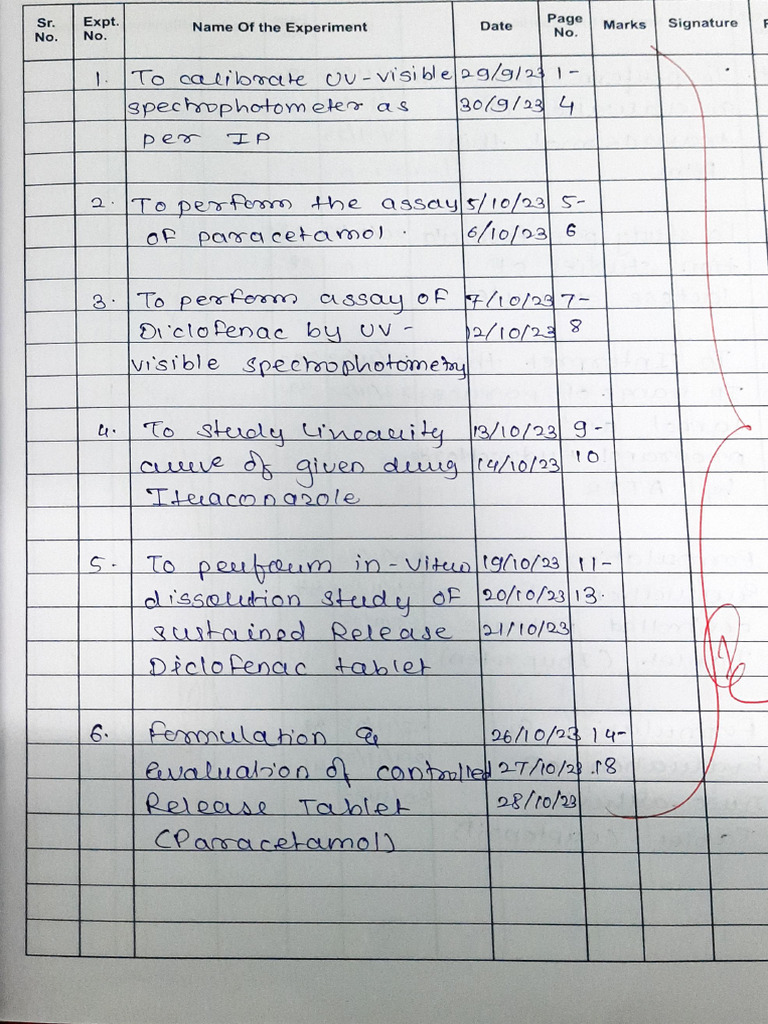 Sr. No. Expt. No. Name Of the Experiment Date Page No. Marks Signature
1. To calibrate UV-visible 29/9/23 1-
spectrophotometer as 30/9/23 4
per IP
2. To perform the assay 5/10/23 5-
of paracetamol. 6/10/23 6
3. To perform assay of 7/10/23 7-
Diclofenac by UV- 12/10/23 8
visible spectrophotometry
4. To study linearity 13/10/23 9-
curve of given drug 14/10/23 10
Itraconazole
5. To perform in-vitro 19/10/23 11-
dissolution study of 20/10/23 13.
sustained Release 21/10/23
Diclofenac tablet
6. Formulation & 26/10/23 14-
evaluation of controlled 27/10/23 .18
Release Tablet 28/10/23
(Paracetamol)